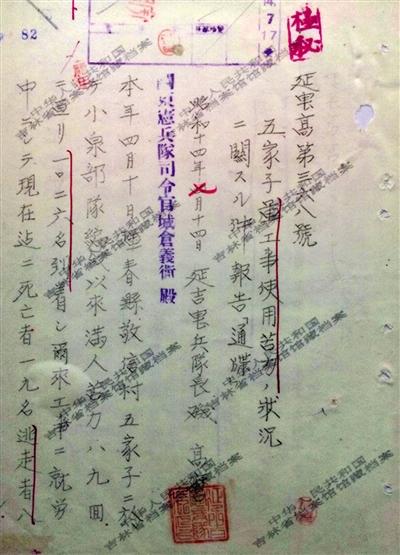 極秘
82
4. 7 17
延憲高第三六八號
五家子軍工事使用苦力ノ狀況
ニ關スル件 報告「通牒」
昭和十四年七月十四日 延吉憲兵隊長 磯 高麿
關東憲兵隊司令官城倉義衛 殿
本年四月十日琿春縣敬信村五家子ニ於
小泉部隊 以來滿人苦力八九回
ニ亘リ一〇二六名到着シ爾來工事ニ就勞
中ニシテ現在迄ニ死亡者一九名逃走者八
中华人民共和国
吉林省档案馆馆藏档案